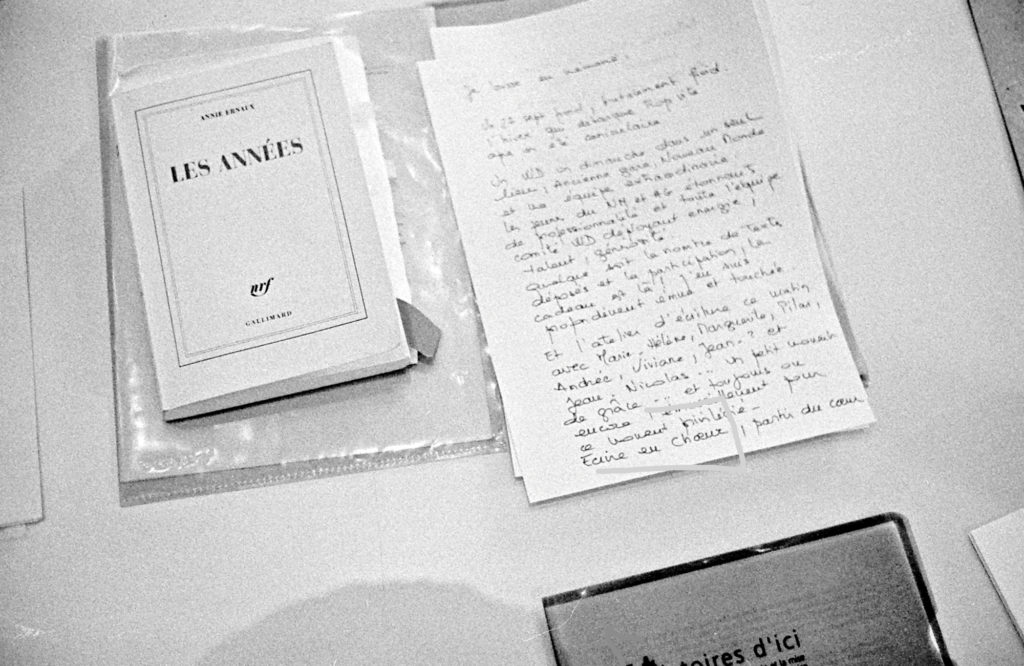 ANNIE ERNAUX
LES ANNÉES
nrf
GALLIMARD
je laisse en
Un 22 sept froid,
l'hiver qui débarque
que un été caniculaire
Un WD un dimanche dans un seul
lieu, Ancienne gare, Nouveau Monde
et une équipe extraordinaire.
les jeunes du NM et AG étonnants
de professionnalité et toute l'équipe
comité WD déployant energie,
talent, générosité
quelque soit le nombre de texte
déposés et la participation, le
cadeau est là, j'en suis
profondément émue et touchée
Et l'atelier d'écriture ce matin
avec Marie Hélène, Marguerite, Pilar,
Andrée, Viviane, Jean-? et
Jean Nicolas... Un petit moment
de grâce... et toujours ou
encore pour
ce moment privilégié -
Ecrire en chœur, partir du cœur
toires d'ici
et la mise